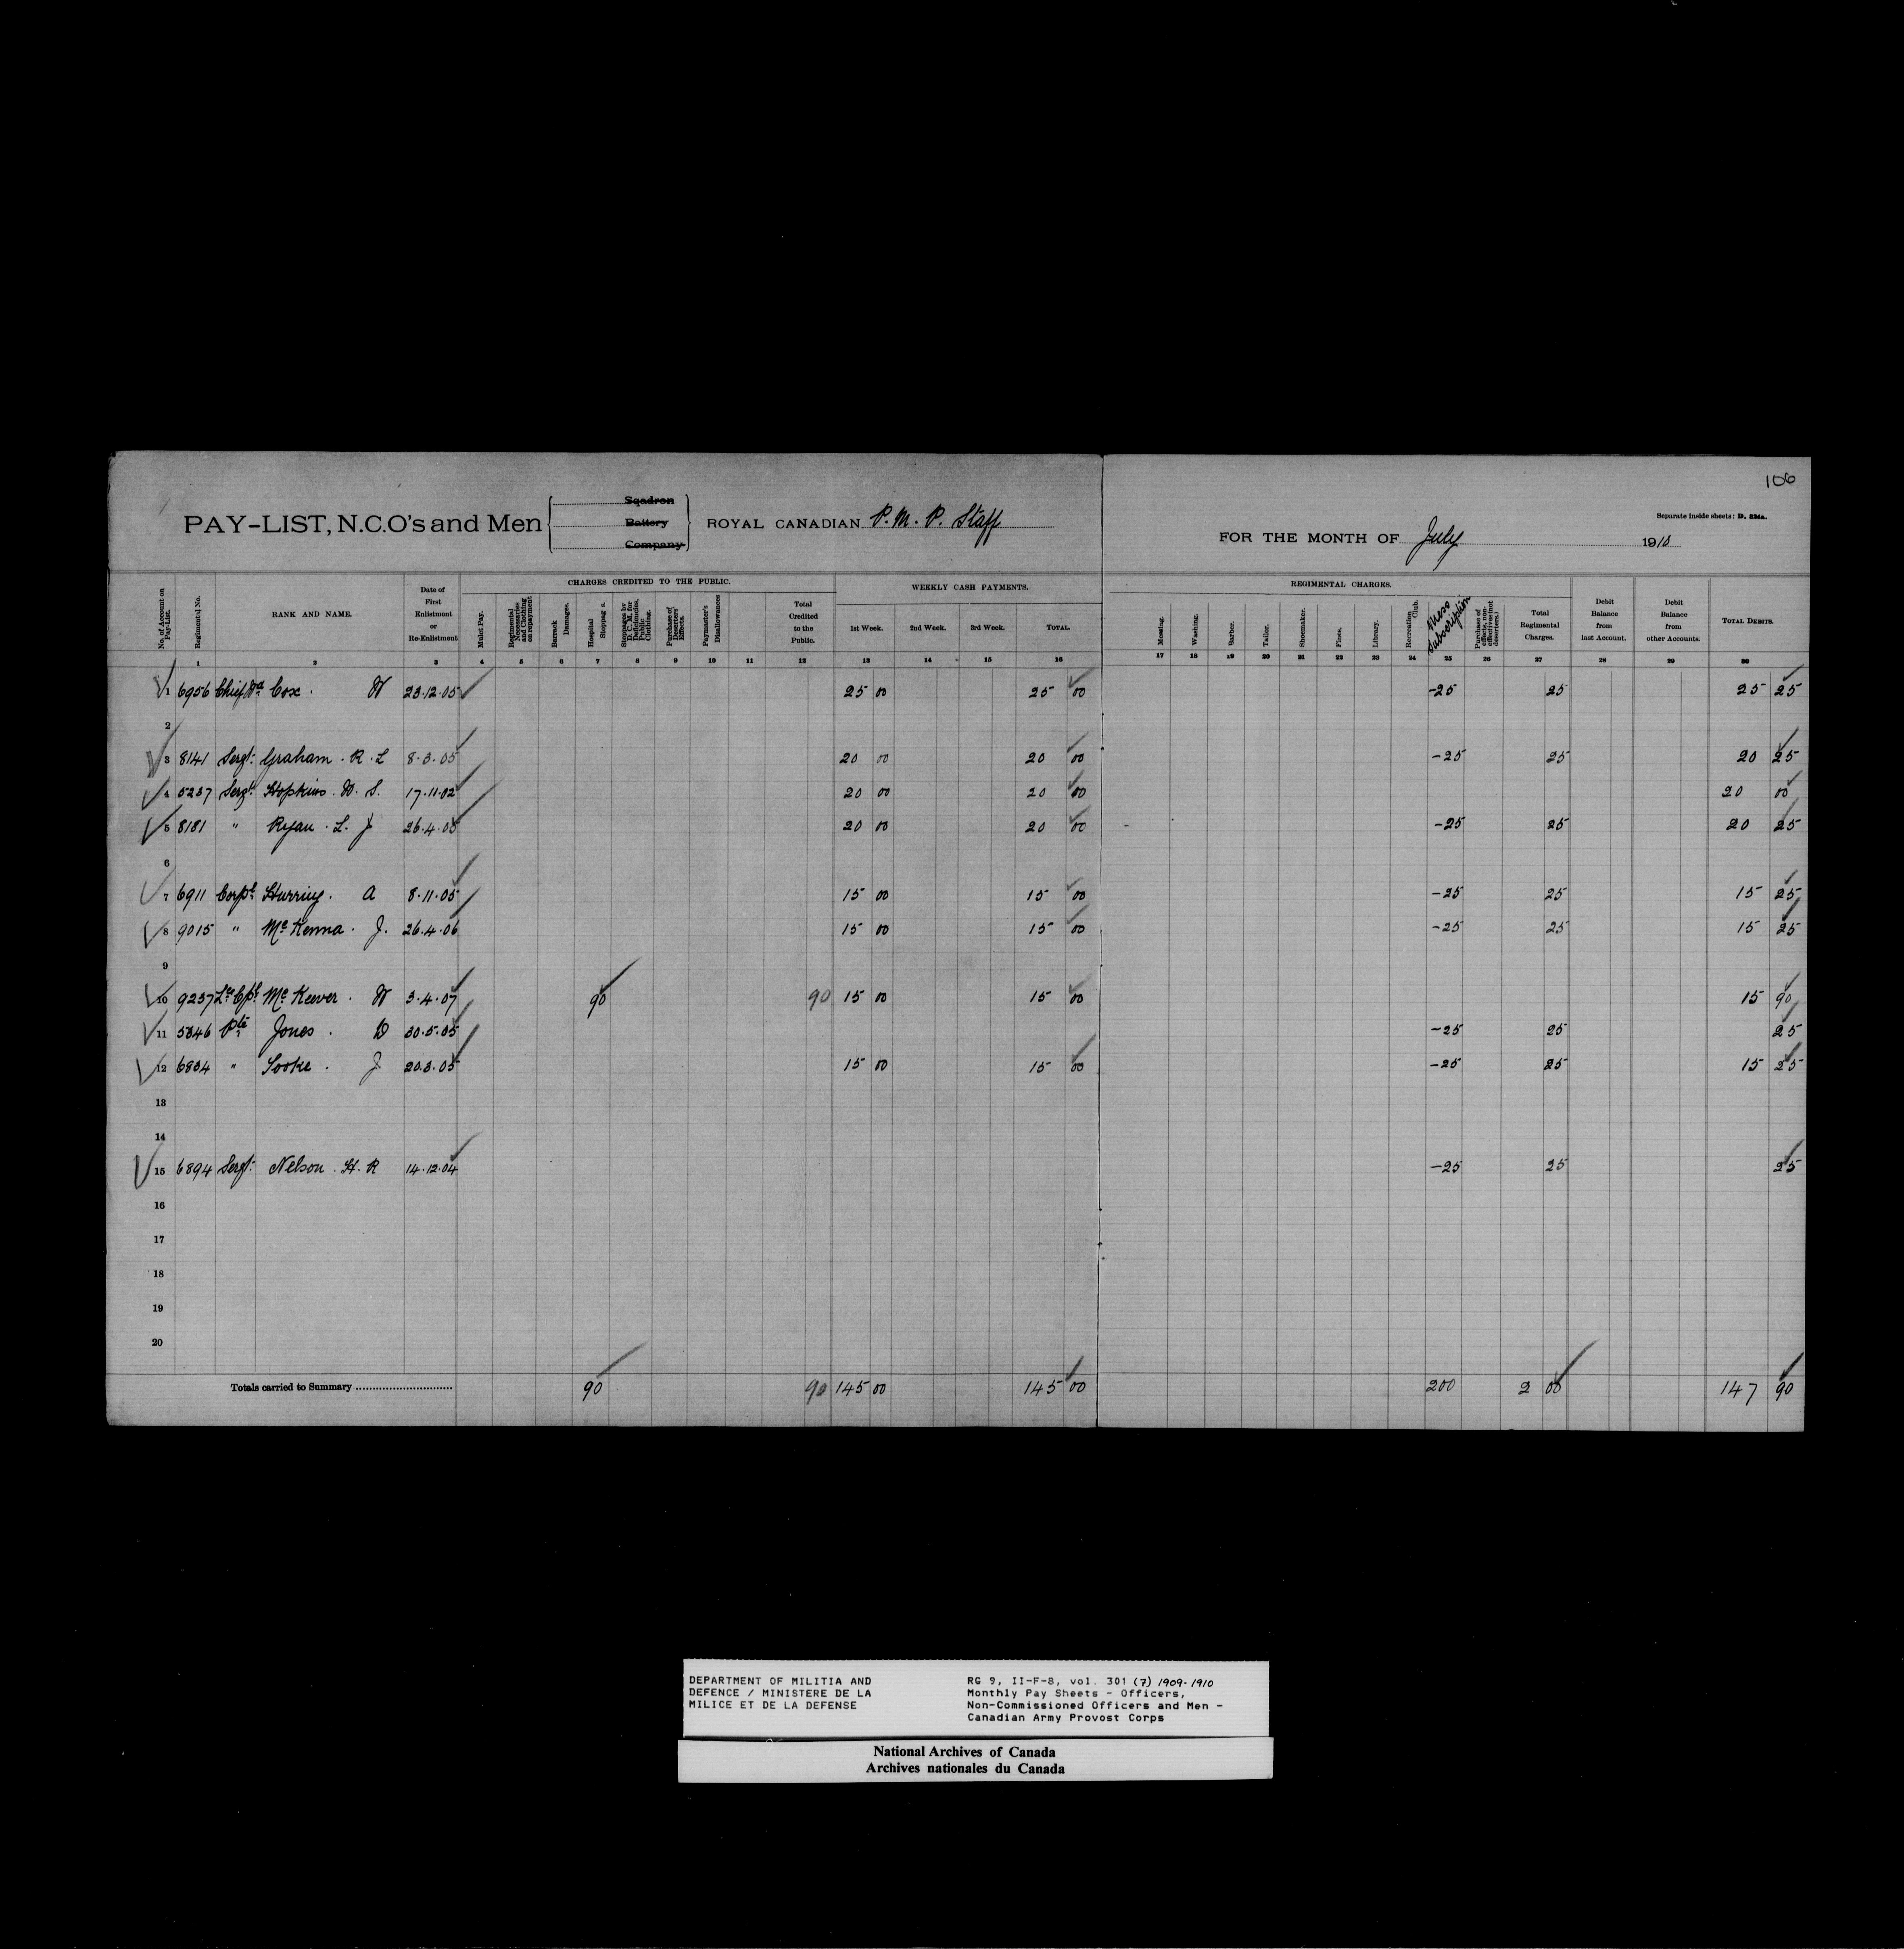 106
PAY-LIST, N.C.O's and Men Sqadron Battery Company ROYAL CANADIAN P. M. P. Staff
Separate inside sheets: D.
FOR THE MONTH OF July 1910
CHARGES CREDITED TO THE PUBLIC. WEEKLY CASH PAYMENTS. REGIMENTAL CHARGES.
No. of Account on Pay-List. Regiment'l No. RANK AND NAME. Date of First Enlistment or Re-Enlistment Mulct Pay. Regimental Necessaries and Clothing on repayment Barrack Damages. Hospital Stoppag s. Stoppages by D.C.M. for Deficiencies, Public Clothing. Purchase of Deserters' Effects. Paymaster's Disallowances Total Credited to the Public. 1st Week. 2nd Week. 3rd Week. TOTAL. Messing. Washing. Barber. Tailor. Shoemaker. Fines. Library. Recreation Club. Mess Subscription Purchase of effects, non-effectives (not deserters.) Total Regimental Charges. Debit Balance from last Account. Debit Balance from other Accounts. TOTAL DEBITS.
1 2 3 4 5 6 7 8 9 10 11 12 13 14 15 16 17 18 19 20 21 22 23 24 25 26 27 28 29 30
1 6956 Chief Cox. W 23.12.05 25 00 25 00 -25 25 25 25
2
3 8141 Sergt. Graham. R. L 8.3.05 20 00 20 00 -25 25 20 25
4 5237 Sergt. Hopkins. W. S. 17.11.02 20 00 20 00 20 00
5 8181 " Ryan. L. J 26.4.05 20 00 20 00 -25 25 20 25
6
7 6911 Corpl. A 8.11.05 15 00 15 00 -25 25 15 25
8 9015 " McKenna. J. 26.4.06 15 00 15 00 -25 25 15 25
9
10 9237 Lce Cpl. McKeever. W 3.4.07 90 90 15 00 15 00 15 90
11 5346 Pte. Jones. D 30.5.05 -25 25 25
12 6834 " Sooke. J. 20.3.05 15 00 15 00 -25 25 15 25
13
14
15 6894 Sergt. Nelson. H. R 14.12.04 -25 25 25
16
17
18
19
20
Totals carried to Summary 90 90 145 00 145 00 200 2 00 147 90
DEPARTMENT OF MILITIA AND
DEFENCE / MINISTERE DE LA
MILICE ET DE LA DEFENSE
RG 9, II-F-8, vol. 301 (7) 1909-1910
Monthly Pay Sheets - Officers,
Non-Commissioned Officers and Men -
Canadian Army Provost Corps
National Archives of Canada
Archives nationales du Canada